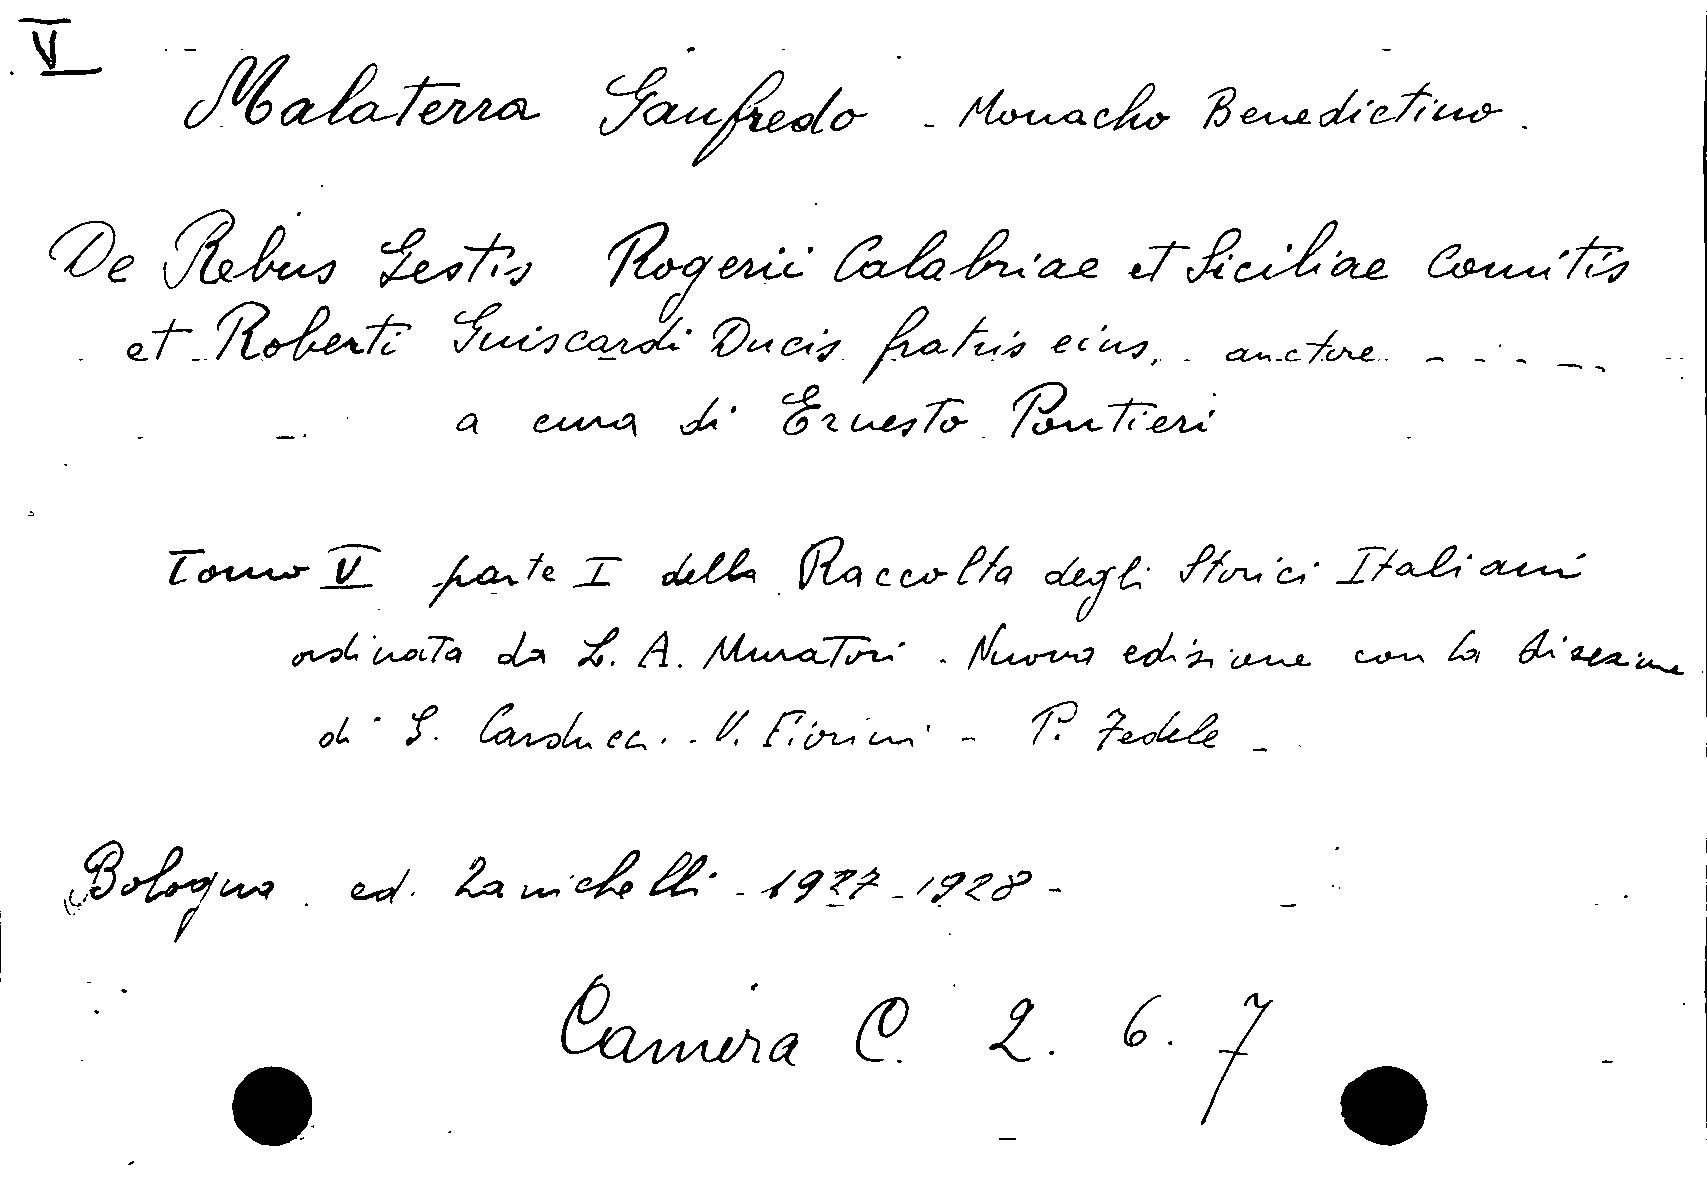 V
Malaterra Gaufredo - Monacho Benedictino.
De Rebus Gestis Rogerii Calabriae et Siciliae Comitis
et Roberti Guiscardi Ducis fratris eius, auctore - - - - -
a cura di Ernesto Pontieri
Tomo V parte I della Raccolta degli Storici Italiani
ordinata da L. A. Muratori. Nuova edizione con la direzione
di G. Carducci - V. Fiorini - P. Fedele -
Bologna ed. Zanichelli - 1927-1928 -
Camera C. 2. 6. 7